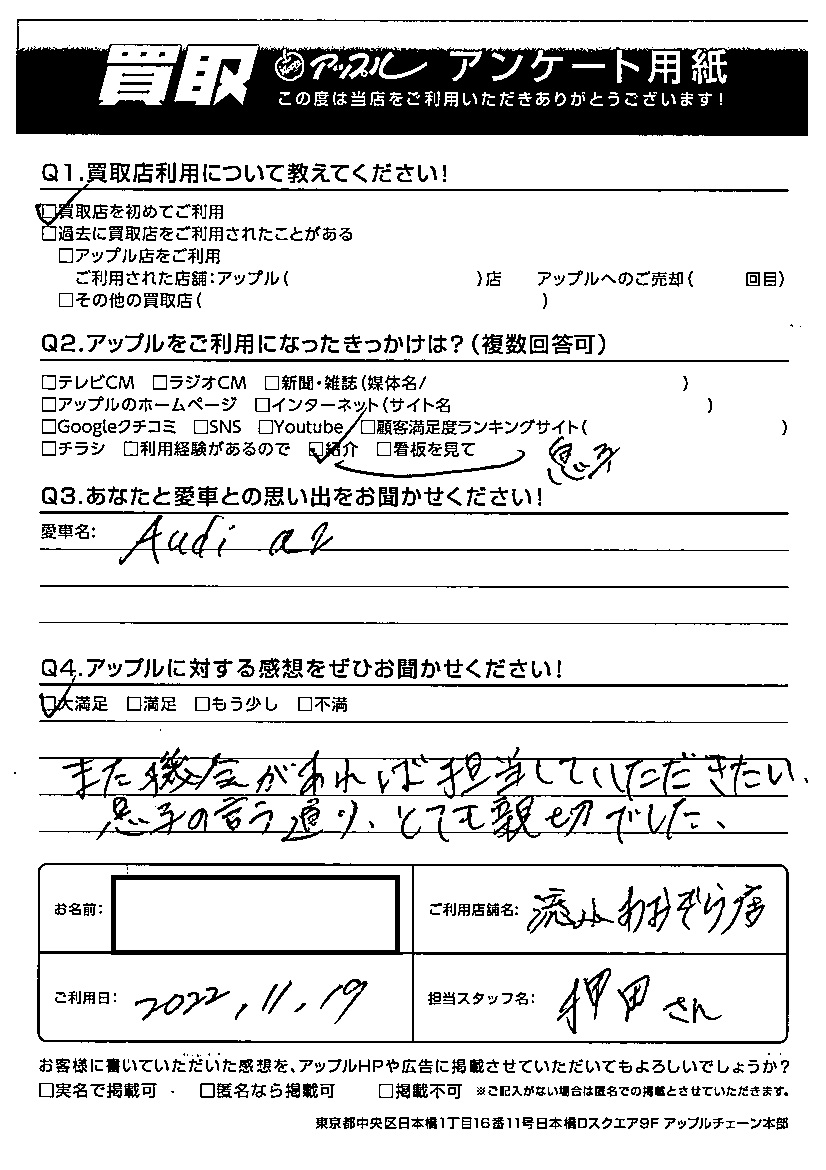 買取 アップル アンケート用紙
この度は当店をご利用いただきありがとうございます!
Q1.買取店利用について教えてください!
□買取店を初めてご利用
□過去に買取店をご利用されたことがある
□アップル店をご利用
ご利用された店舗:アップル( )店 アップルへのご売却( 回目)
□その他の買取店( )
Q2.アップルをご利用になったきっかけは?(複数回答可)
□テレビCM □ラジオCM □新聞・雑誌(媒体名/ )
□アップルのホームページ □インターネット(サイト名 )
□Googleクチコミ □SNS □Youtube □顧客満足度ランキングサイト( )
□チラシ □利用経験があるので □紹介 □看板を見て 息子
Q3.あなたと愛車との思い出をお聞かせください!
愛車名: Audi a2
Q4.アップルに対する感想をぜひお聞かせください!
□大満足 □満足 □もう少し □不満
また機会があれば担当していただきたい、
息子の言う通り、とても親切でした、
お名前: ご利用店舗名: 流山おおぞら店
ご利用日: 2022, 11, 19 担当スタッフ名: 押田さん
お客様に書いていただいた感想を、アップルHPや広告に掲載させていただいてもよろしいでしょうか?
□実名で掲載可 □匿名なら掲載可 □掲載不可 ※ご記入がない場合は匿名での掲載とさせていただきます。
東京都中央区日本橋1丁目16番11号日本橋Dスクエア9F アップルチェーン本部